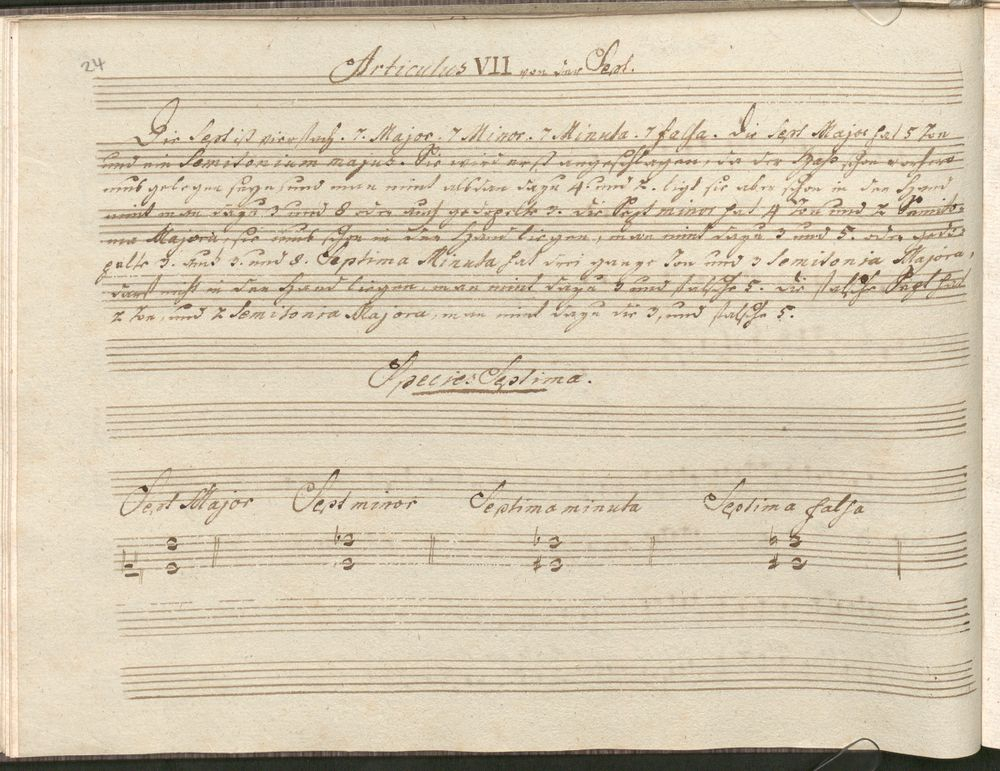 24
Articulus VII von der Sept.
Die Sept ist vierfach. 7. Major. 7 Minor. 7 Minuta. 7 falsa. Die Sept Major hat 5 Ton
und ein Semitonium majus. Sie wird erst angeschlagen, da der Bass schon vorhero
mus gelegen seyn, und man nimt alsdan dazu 4. und 2. ligt sie aber schon in der Hand
nimt man dazu 3 und 8 oder auch gedopelte 3. die Sept minor hat 4 Ton und 2 Semito-
nia Majora, sie mus schon in der Hand liegen, man nimt dazu 3 und 5. oder gedo-
pelte 3. auch 3. und 8. Septima Minuta hat drei ganze Ton und 3 Semitonia Majora,
darf nicht in der Hand liegen, man nimt dazu 3 und falsche 5. die falsche Sept hat
2 Ton, und 2 Semitonia Majora, man nimt dazu die 3, und falsche 5.
Species Septima.
Sept Major Sept minor Septima minuta Septima falsa